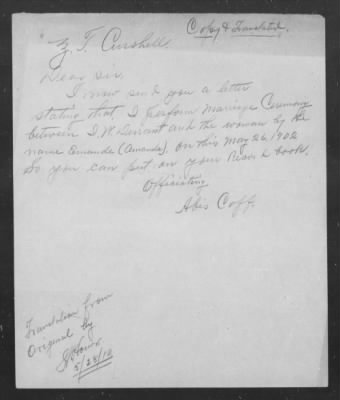 Copy & Translated.
Z. T. Curshell
Dear Sir,
I now send you a letter
stating that, I perform Marriage Ceremony
between I. W. Durrant and the woman by the
name Emande (Amanda), on this May 26, 1902
So you can put on your book.
Officiating
Abis Coff.
Translation from
Original by
5/25/10